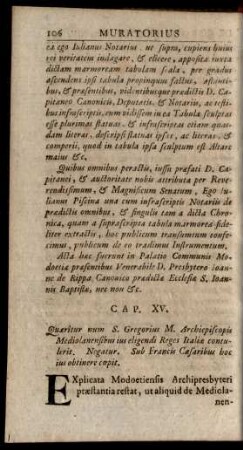 106 MURATORIUS
ea ego Iulianus Notarius. ut supra, cupiens huius
rei veritatem indagare, & elicere, apposita iuxta
dictam marmoream tabulam scala, per gradus
ascendens ipsi tabulæ propinquus factus, astantibus,
& præsentibus, videntibusque prædictis D. Capitaneo
Canonicis, Deputatis, & Notariis, ac testibus
infrascriptis, cum vidissem in ea Tabula sculptas
esse plurimas statuas, & inscriptas etiam quasdam
literas, descripsi statuas ipsas, ac literas, &
comperii, quod in tabula ipsa sculptum est Altare
maius &c.
Quibus omnibus peractis, iussu præfati D. Capitanei,
& auctoritate nobis attributa per Reverendissimum,
& Magnificum Senatum, Ego Iulianus
Pissina una cum infrascriptis Notariis de
prædictis omnibus, & singulis tam a dicta Chronica,
quam a suprascripta tabula marmorea fideliter
extractis, hoc publicum transumtum conficimus,
publicum de eo tradimus Instrumentum.
Acta hæc fuerunt in Palatio Communis Modoetiæ
præsentibus Venerabile D. Presbytero Ioanne
de Rippa, Canonico prædictæ Ecclesiæ S. Ioannis
Baptistæ, nec non &c.
CAP. XV.
Quæritur num S. Gregorius M. Archiepiscopis
Mediolanensibus ius eligendi Reges Italiæ contulerit.
Negatur. Sub Francis Cæsaribus hoc
ius obtinere cœpit.
EXplicata Modoetiensis Archipresbyteri
præstantia restat, ut aliquid de Mediola-
nen-